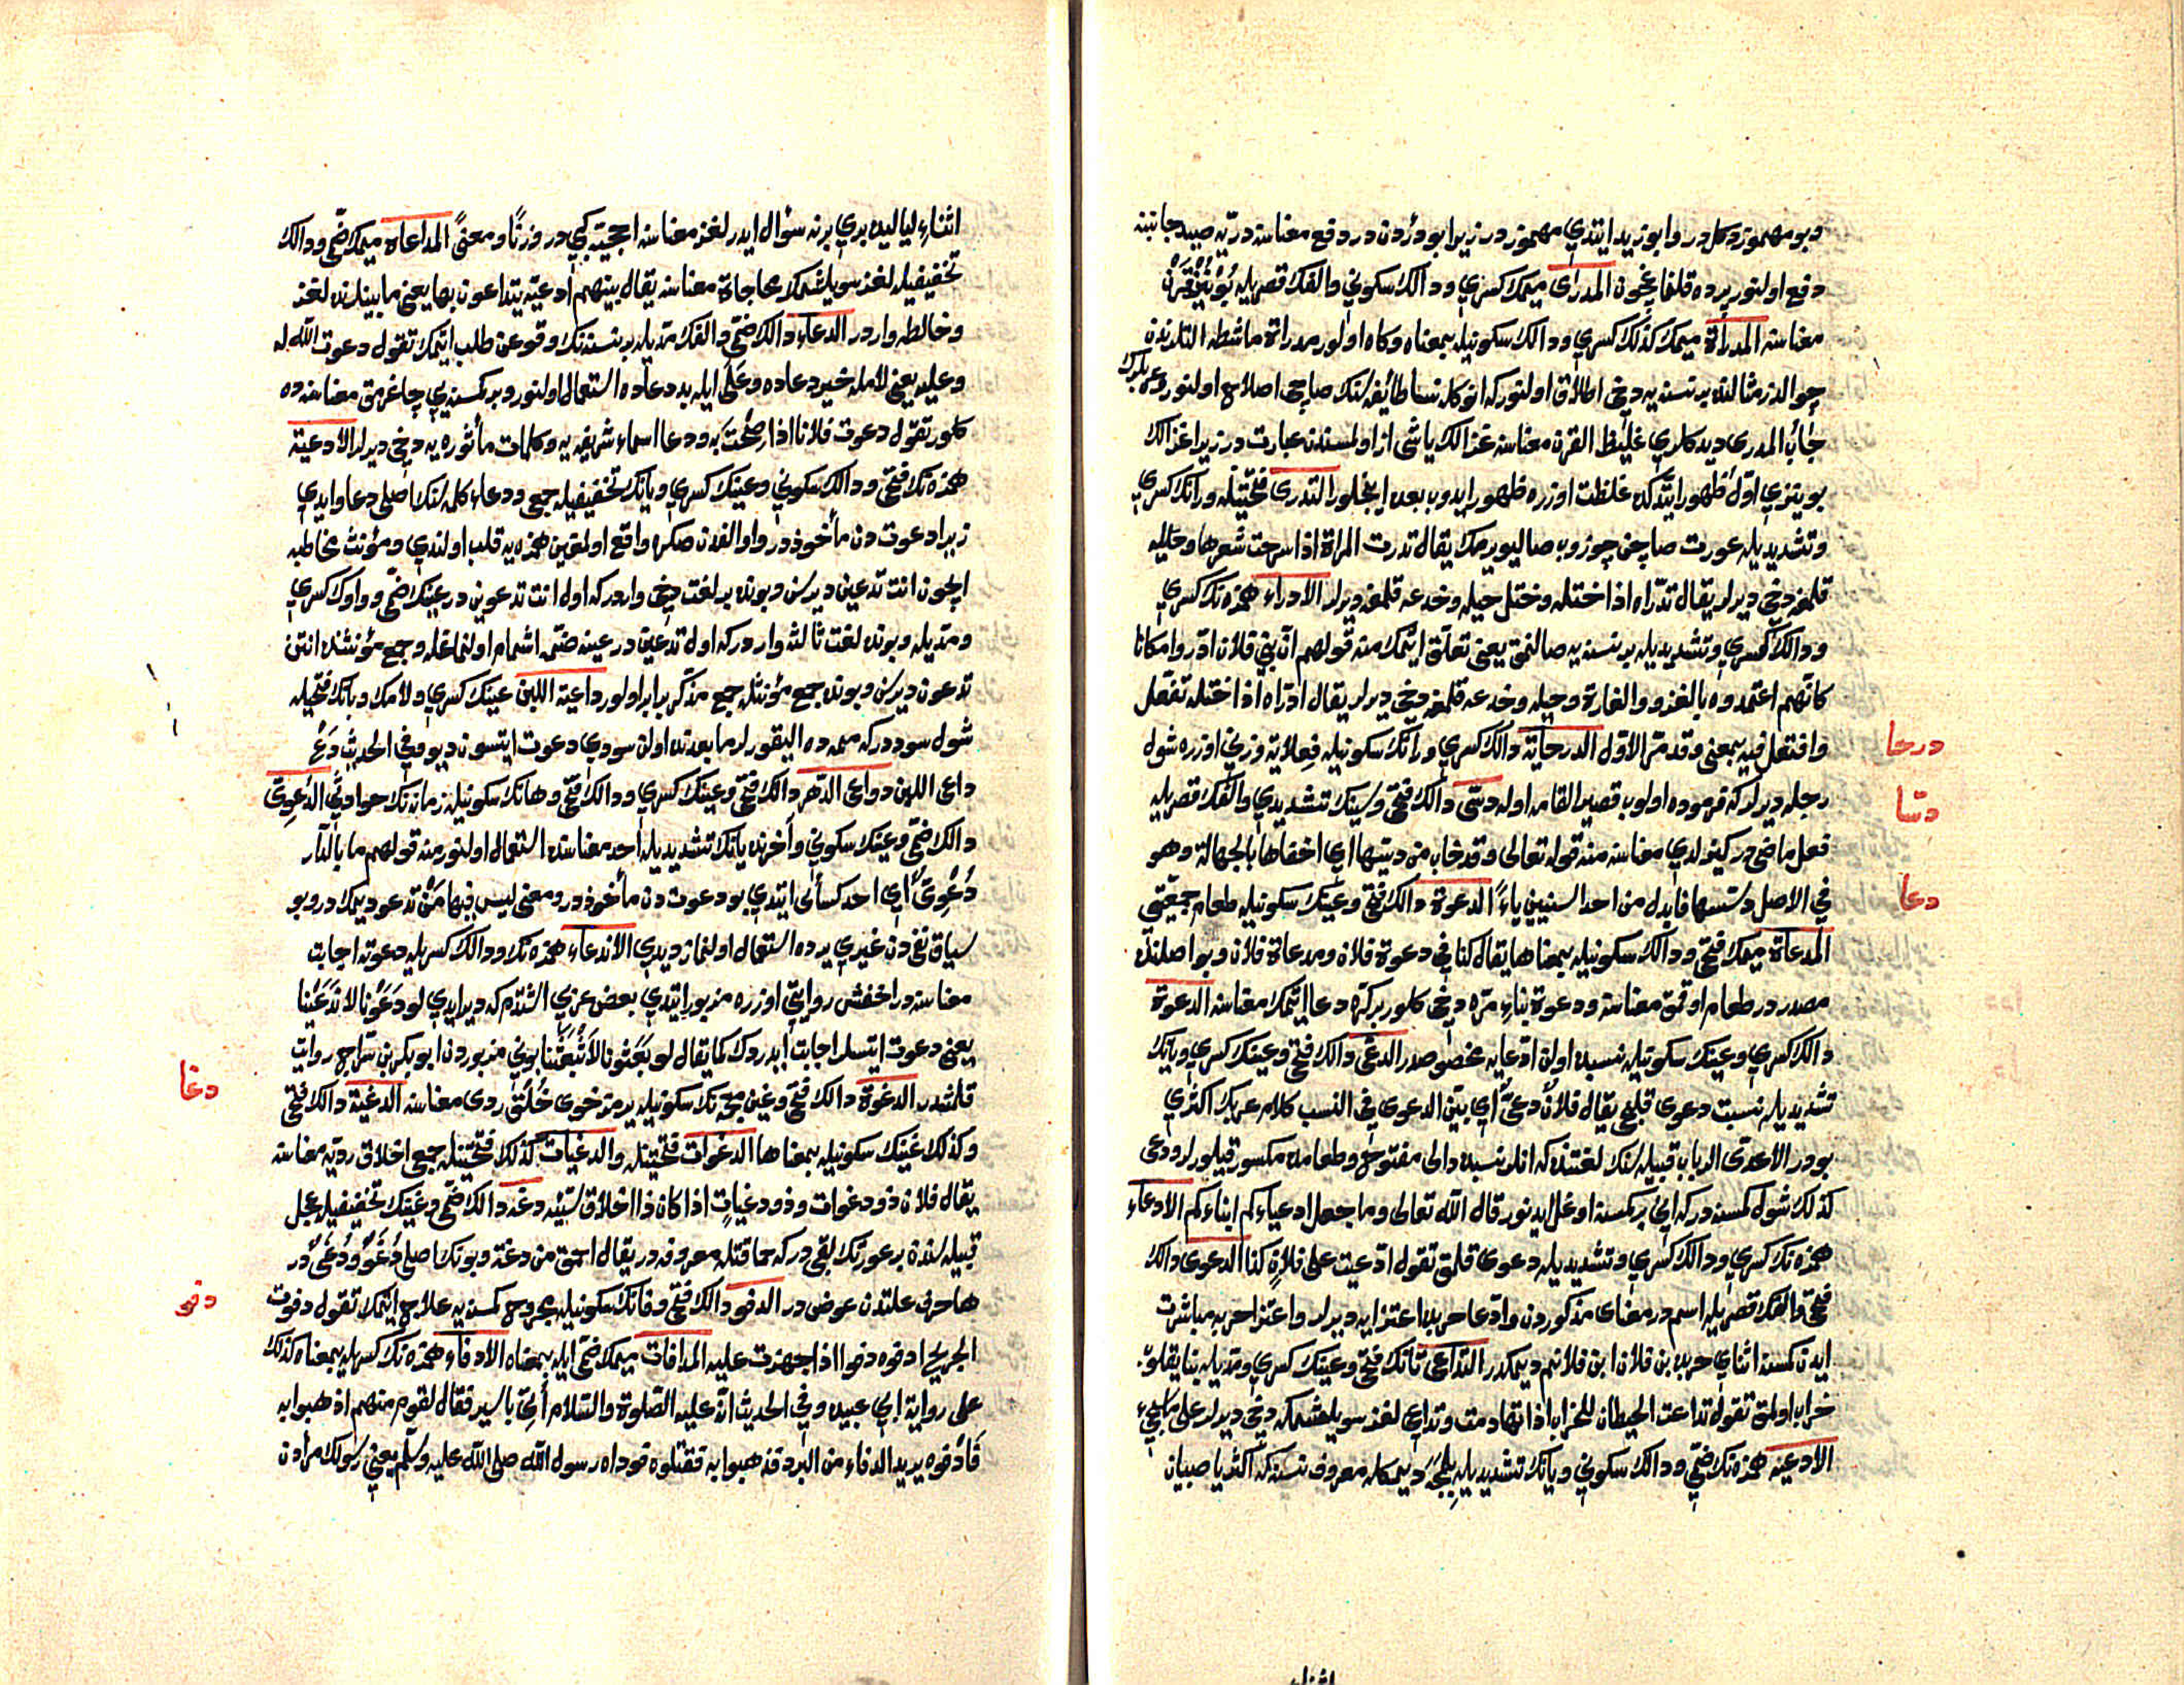 وبو مهموز دكل در وابو زيد ايتدي مهموز در زيرا بو درؤدن در دفع معناسنه دريّه صيد جانبنه
دفع اولنور يرده قلنماغچون المدرى ميمك كسري ودالك سكوني والفك قصريله بُوْيْنُوْزْ قَرْن
معناسنه المدراة ميمك كذلك كسري ودالك سكونيله بمعناه وكاه اولور مدراة ماشطه النلرنده
چوالدز مثالنده بر نسنه يه دخى اطلاق اولنور كه انوكله نسا طائفه سنك صاچى اصلاح اولنور وعربلرك
جأب المدرى ديدكلري غليظ القرن معناسنه غزالك ياشى از اولمسندن عبارت در زيرا غزالك
بوينوزي اوّل ظهور ايتدكده غلظت اوزره ظهور ايدوب بعده اينجلور التدرى فتحتيله ورانك كسري
وتشديديله عورت صاچن چوزوب صاليويرمك يقال تدرت المراة اذا سرحت شعرها وحيله
قلمغه دخى ديرلر يقال تدّراه اذا ختله وختل حيله وخدعه قلمغه ديرلر الادراء همزه نك كسري
ودالك كسري وتشديديله بر نسنه يه صالنمق يعنى تعلّق ايتمك منه قولهم انّ بني فلان ادّروا مكانا
كانّهم اعتمدوه بالغزو والغارة وحيله وخدعه قلمغه دخى ديرلر يقال ادّراه اذا ختله تفعّل
وافتعل فيه بمعنى وقد مرّ الاوّل الدرحاية دالك كسري ورانك سكونيله فِعلاية وزني اوزره شول
درحا
رجله ديرلر كه فربوده اولوب قصير القامه اوله دسّى دالك فتحى وسينك تشديدي والفك قصريله
دسّا
فعل ماضى در كيزلدي معناسنه منه قوله تعالى وقد خاب من دسّيها اي اخفاها بالجهالة وهو
في الاصل دسّسها فابدل من احد السنيين ياءً الدعوة دالك فتحى وعينك سكونيله طعام جمعيّتي
دعا
المدعاة ميمك فتحى ودالك سكونيله بمعناها يقال كنا في دعوة فلان ومدعاة فلان وبو اصلنده
مصدر در طعام اوقمق معناسنه ودعوة بناءِ مرّه دخى كلور بر كرّه دعا ايتمك معناسنه الدعوة
دالك كسري وعينك سكونيله نسبده اولن ادّعايه مخصوصدر الدعىّ دالك فتحى وعينك كسري ويانك
تشديديله نسبت دعوى قلجى يقال فلانٌ دعىٌّ اي بيّن الدعوى في النسب كلام عربك اكثري
بودر الّا عدىّ الرباب قبيله سنك لغتنده كه انلر نسبده دالى مفتوح وطعامده مكسور قيلورلر ودعى
كذلك شول كمسنه در كه اني بر كمسنه اوغل ايدنور قال الله تعالى وما جعل ادعياءكم ابناءكم الادعاء
همزه نك كسري ودالك كسري وتشديديله دعوى قلمق تقول ادّعيت على فلانٍ كذا الدعوى دالك
فتحى والفك قصريله اسم در معناى مذكوردن وادّعا حربده اعتزايه ديرلر واعتزا حربه مباشرت
ايدن كمسنه اثناي حربده بن فلان ابن فلانيم ديمكدر التداعى تانك فتحى وعينك كسري ومدّيله بنا يقلوب
خراب اولمق تقول تداعت الحيطان للخراب اذا تهادمت وتداعي لغز سويلشمكه دخى ديرلر على ما يجيء
الادعيّه همزه نك ضمّي ودالك سكوني ويانك تشديديله بِلْمَجَه ديمكله معروف نسنه كه اكثريا صبيان
اثناءِ لياليده بري برنه سؤال ايدر لغز معناسنه احجيّه كبي در وزنًا ومعنىً المداعاة ميمك ضمّى ودالك
تخفيفيله لغز سويلشمك محاجاة معناسنه يقال بينهم ادعيّة يتداعون بها يعنى مابينلرنده لغز
ومخالطه واردر الدعاء دالك ضمّي والفك مدّيله بر نسنه نك وقوعن طلب ايتمك تقول دعوت الله له
وعليه يعنى لامله خير دعاده وعَلَى ايله بد دعاده استعمال اولنور وبر كمسنه يي چاغرمق معناسنه ده
كلور تقول دعوت فلانا اذا صِحْتَ به ودعا اسماء شريفه يه وكلمات مأثوره يه دخى ديرلر الادعية
همزه نك فتحى ودالك سكوني وعينك كسري ويانك تخفيفيله جمعى ودعاء كلمه سنك اصلى دعاو ايدي
زيرا دعوت دن مأخوذ در واو الفدن صكره واقع اولمغين همزه يه قلب اولندي ومؤنث مخاطبه
ايچون انت تدعين ديرسن وبونده بر لغت دخى واردر كه اول انت تدعوين در عينك ضمّى وواوك كسري
ومدّيله وبونده لغت ثالثه واردر كه اول تدعين در عينه ضمّه اشمام اولنماغله وجمع مؤنثنده انتن
تدعون ديرسن وبونده جمع مؤنثله جمع مذكّر برابر اولور داعية اللبن عينك كسري ولامك وبانك فتحيله
شول سوددر كه ممه ده اليقورلر مابعدنده اولن سودي دعوت ايتسون ديو وفي الحديث دَعْ
داعى اللبن دواعى الدهر دالك فتحى وعينك كسري ودالك فتحى وهانك سكونيله زمانه نك حوادثي الدُعوىّ
دالك ضمّى وعينك سكوني وآخرنده يانك تشديديله احد معناسنده استعمال اولنور منه قولهم ما بالدار
دُعْوِىٌّ اي احد كسائى ايتدي بو دعوت دن مأخوذ در ومعنى ليس فيها مَنْ تدعو ديمك در وبو
سياق نفيدن غيري يرده استعمال اولنماز ديدي الاندعاء همزه نك ودالك كسريله دعوته اجابت
معناسنه در اخفش روايتي اوزره مزبور ايتدي بعض عربي اشتدم كه ديرايدي لو دَعَوْنا لانْدَعَيْنا
يعنى دعوت ايتسلر اجابت ايدردك كما يقال لو بَعَثونا لَانْبَعَثْنا بوني مزبوردن ابو بكر بن سرّاج روايت
قلمشدر الدغوة دالك فتحى وغين معجمه نك سكونيله يرمز خوى خُلُقٌ ردى معناسنه الدغية دالك فتحى
دغا
وكذلك غينك سكونيله بمعناها الدغوات فتحتيله والدغيات كذلك فتحتيله جمعى اخلاق رديّه معناسنه
يقال فلان ذو دغوات وذو دغيات اذا كان ذا اخلاق سيّئه دغه دالك ضمّى وغينك تخفيفيله عجل
قبيله سنده بر عورتك لقبي در كه حماقتله معروفه در يقال احمق من دغة وبونك اصلى دُغَوٌ ودُغَىٌ در
ها حرف علتدن عوض در الدفو دالك فتحى وفانك سكونيله مجروح كمسنه يه علاج ايتمك تقول دفوت
دفو
الجريح ادفوه دفوا اذا اجهزت عليه المدافات ميمك ضمّى ايله بمعناه الادفاء همزه نك كسريله بمعناه كذلك
على رواية ابي عبيد وفي الحديث انّه عليه الصّلوة والسّلام أُتِيَ باسير فقال لقوم منهم اذهبوا به
فَأَدْفوه يريد الدفاء من البرد فذهبوا به فقتلوه فوداه رسول الله صلى الله عليه وسلّم يعني رسولك مرادن